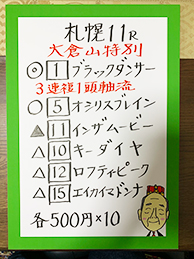 札幌11R
大倉山特別
◎1ブラックダンサー
3連複1頭軸流
○5オシリスブレイン
▲11インザムービー
△10キーダイヤ
△12ロフティピーク
△15エイカイマドンナ
各500円×10